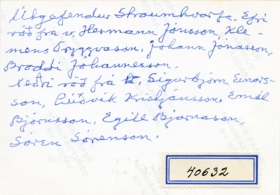 Útgefendur Straumhvarfa. Efri
röð frá v. Hermann Jónsson, Kle-
mens Tryggvason, Jóhann Jónasson,
Broddi Jóhannesson.
Neðri röð frá v. Sigurbjörn Einars-
son, Lúðvík Kristjánsson, Emil
Björnsson, Egill Bjarnason,
Sören Sörenson.
40632